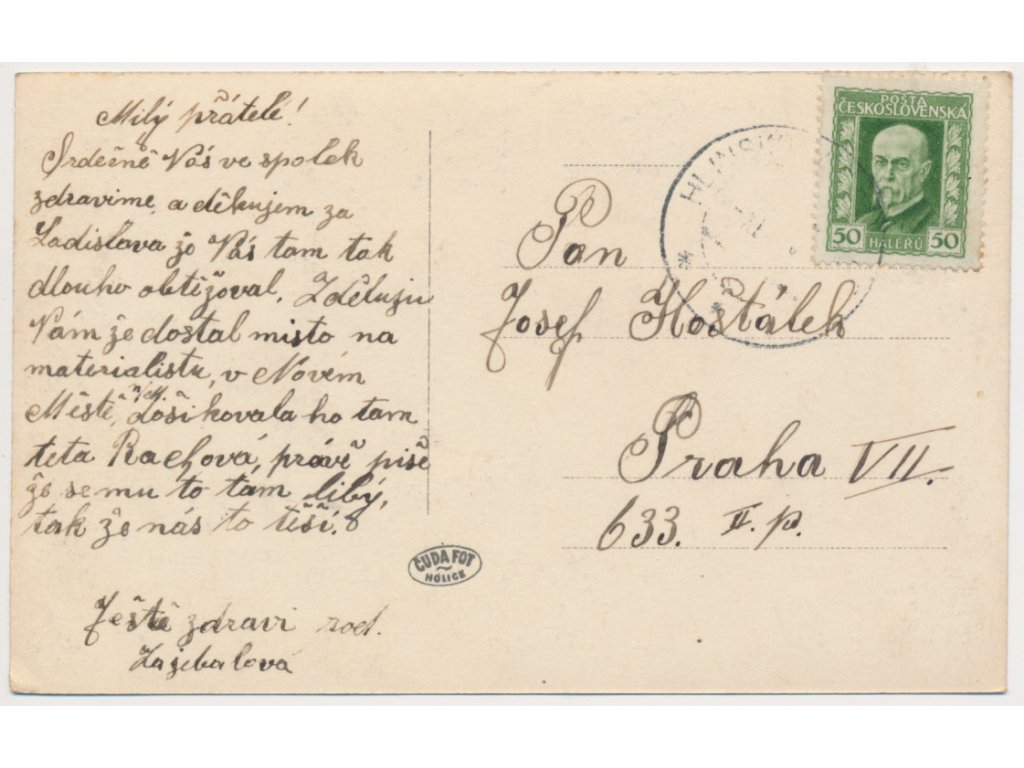 Milý přátelé!
Srdečně Vás ve spolek
zdravime a děkujem za
Ladislava žo Vás tam tak
dlouho obtižoval. Zděluju
Vám že dostal misto na
materialistu, v Novém
Městě n/M. došikovala ho tam
teta Rachová, právě piše
že se mu to tam libý,
tak že nás to těší.
Ještě zdravi rod.
POŠTA
ČESKOSLOVENSKA
50 HALÉŘŮ 50
HLINSKO
Pan
Josef Hoštálek
Praha VII.
633. II. p.
ČUDA FOT
HOLICE